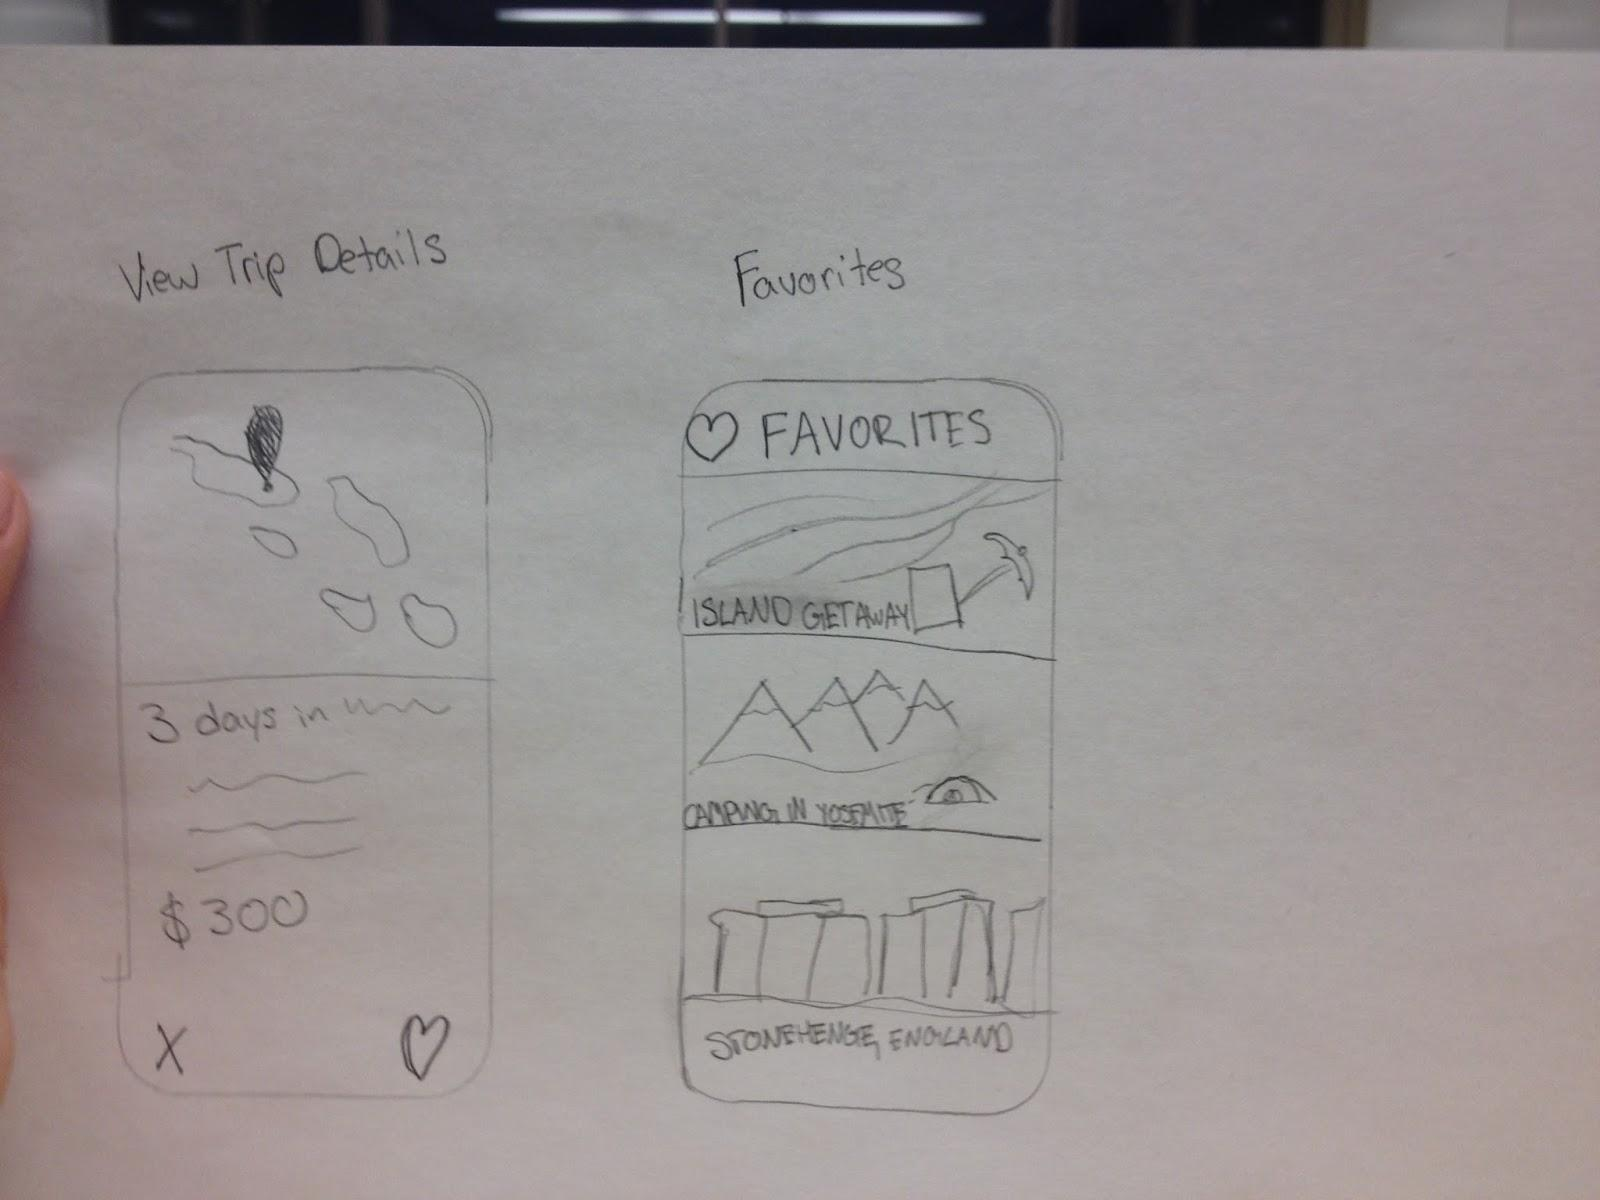 View Trip Details
Favorites
3 days in
$300
X
FAVORITES
ISLAND GETAWAY
CAMPING IN YOSEMITE
STONEHENGE, ENGLAND